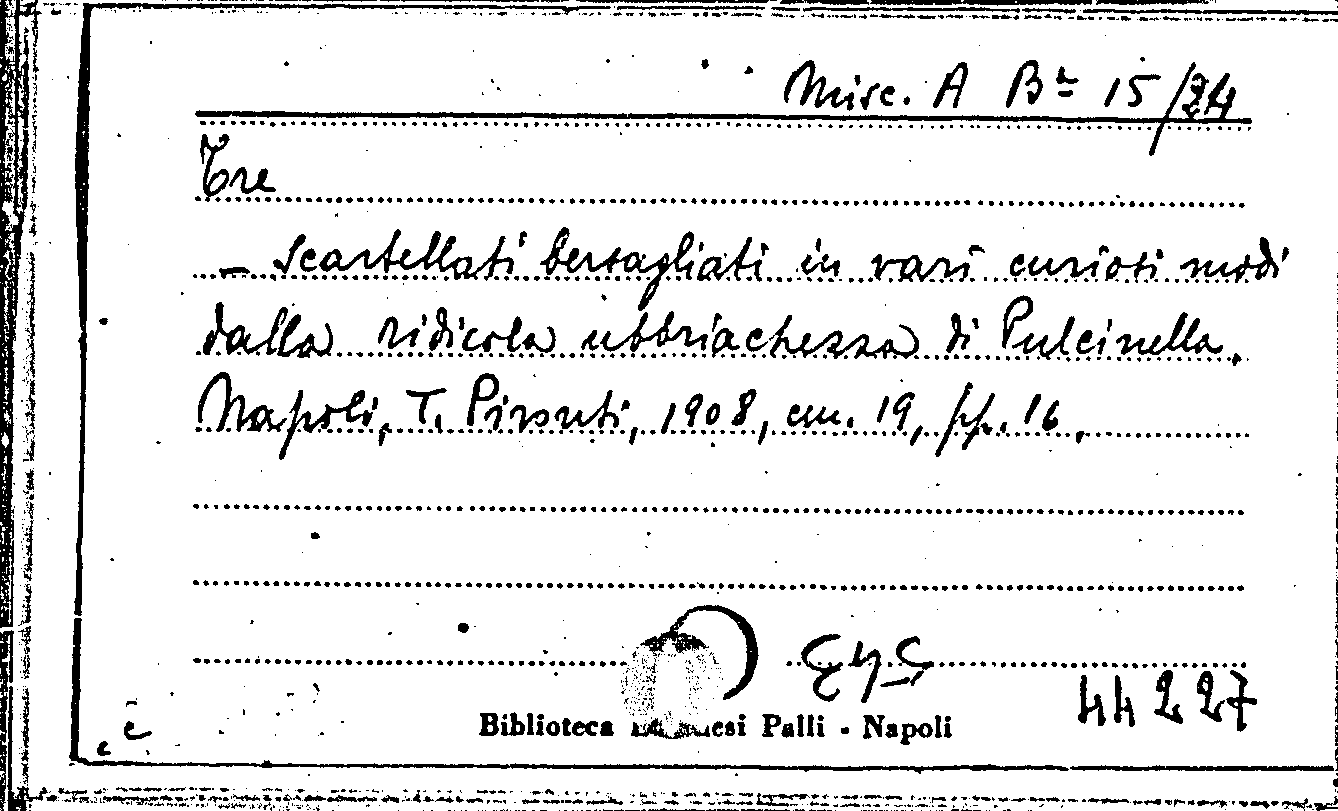 Misc. A Bª 15/24
Tre
– scartellati bersagliati in vari curiosi modi
dalla ridicola ubbriachezza di Pulcinella.
Napoli, T. Pironti, 1908, cm. 19, pp. 16.
44227
Biblioteca Palli - Napoli